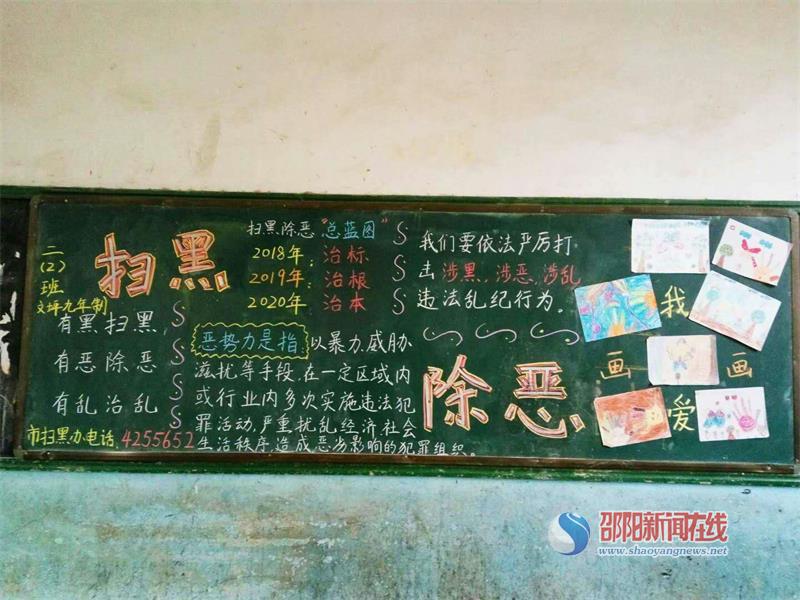 二
(2)
班
文坪九年制
扫黑
有黑扫黑,
有恶除恶
有乱治乱
市扫黑办电话:4255652
扫黑除恶"总蓝图"
2018年:治标
2019年:治根
2020年:治本
恶势力是指:以暴力、威胁
滋扰等手段,在一定区域内
或行业内多次实施违法犯
罪活动,严重扰乱经济社会
生活秩序,造成恶劣影响的犯罪组织。
我们要依法严厉打
击涉黑、涉恶、涉乱
违法乱纪行为。
除恶
我
画 画
爱
邵阳新闻在线
www.shaoyangnews.net